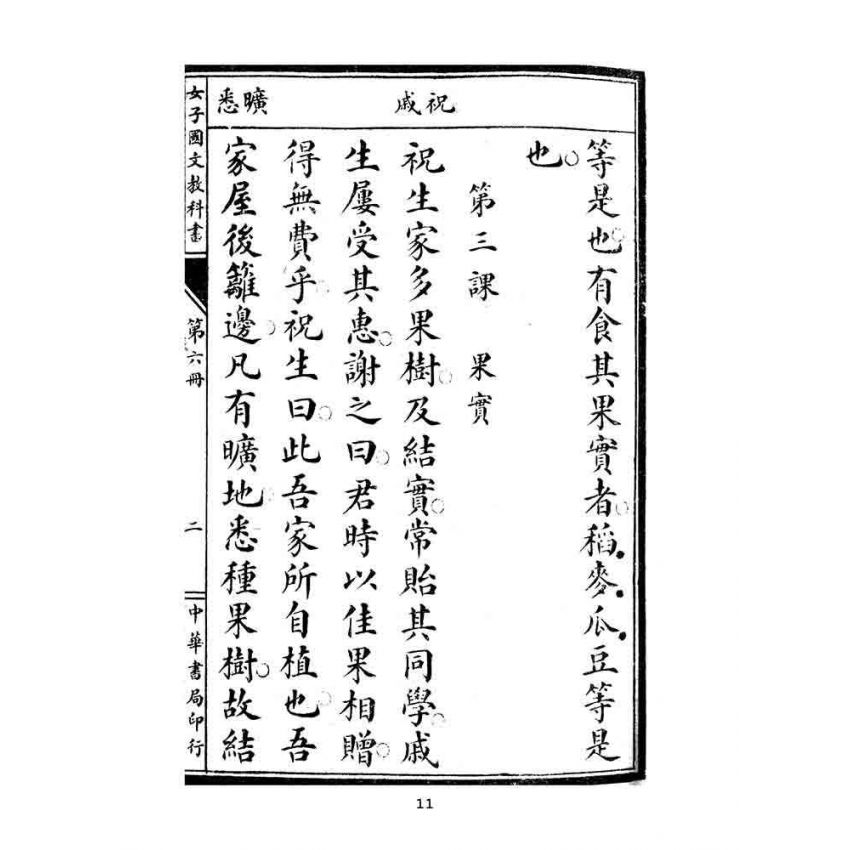 祝戚
曠悉
等是也。有食其果實者。稻.麥.瓜.豆等是
也。
第三課 果實
祝生家多果樹。及結實。常貽其同學。戚
生屢受其惠。謝之曰。君時以佳果相贈。
得無費乎。祝生曰。此吾家所自植也。吾
家屋後籬邊。凡有曠地。悉種果樹。故結
女子國文教科書
第六冊
二
中華書局印行
11